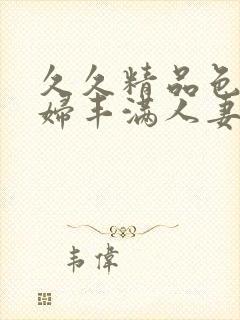 久久精品色
婦丰满人妻
韦偉